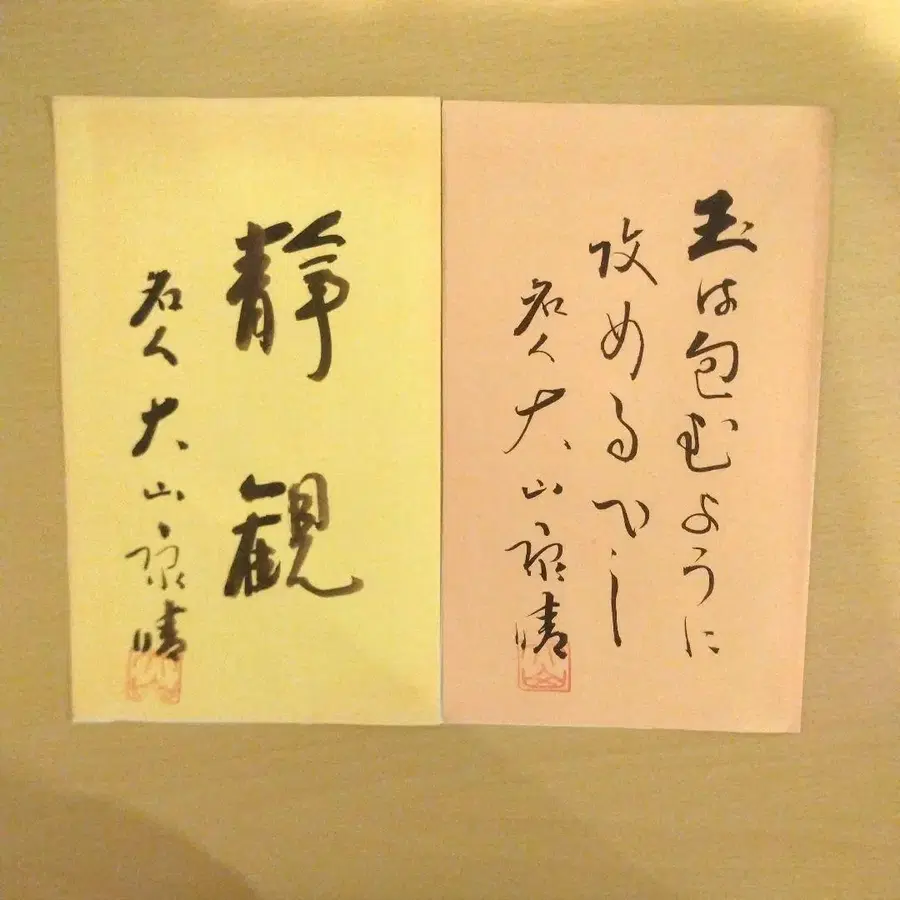 玉は包むように
攻めるべし
名人大山康晴
静観
名人大山康晴